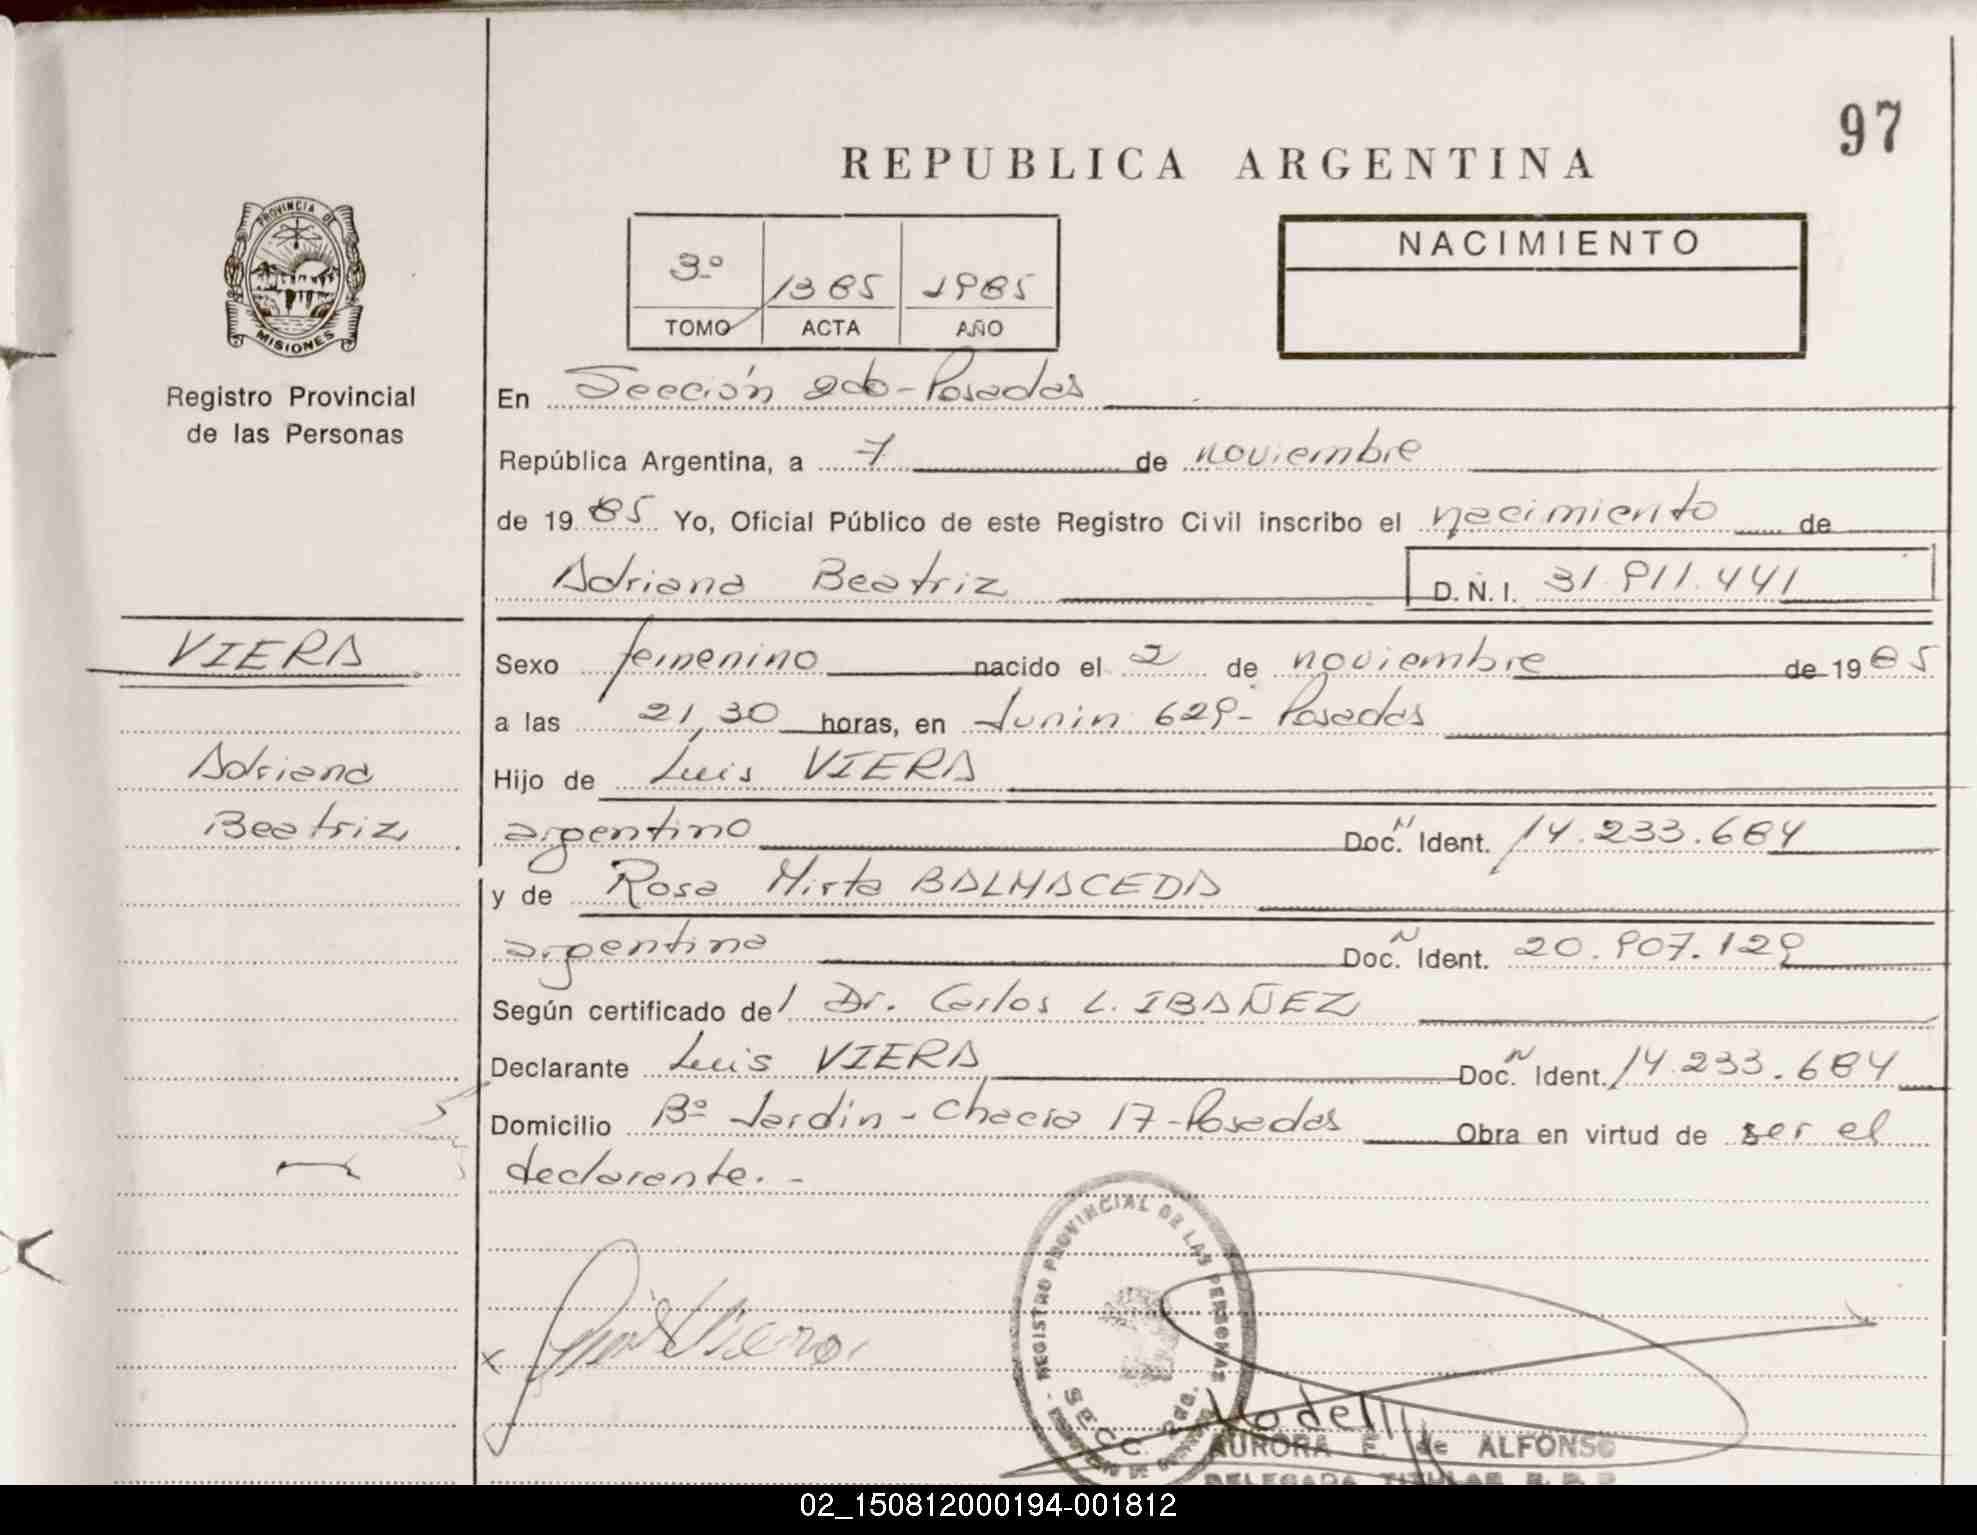 97
REPUBLICA ARGENTINA
PROVINCIA DE
MISIONES
Registro Provincial
de las Personas
3º 1385 1985
TOMO ACTA AÑO
NACIMIENTO
En Sección 2do - Posadas
República Argentina, a 7 de noviembre
de 1985 Yo, Oficial Público de este Registro Civil inscribo el nacimiento de
Adriana Beatriz D.N.I. 31.911.441
VIERA
Adriana
Beatriz
Sexo femenino nacido el 2 de noviembre de 1985
a las 21,30 horas, en Junin 629 - Posadas
Hijo de Luis VIERA
argentino Doc. N Ident. 14.233.684
y de Rosa Mirta BALMACEDA
argentina Doc. N Ident. 20.907.129
Según certificado del Dr. Carlos L. IBAÑEZ
Declarante Luis VIERA Doc. N Ident. 14.233.684
Domicilio Bº Jardin - Chacra 17 - Posadas Obra en virtud de ser el
declarante. -
REGISTRO PROVINCIAL DE LAS PERSONAS
SECC.
AURORA E. de ALFONSO
DELEGADA TITULAR R. P. P.
02_150812000194-001812